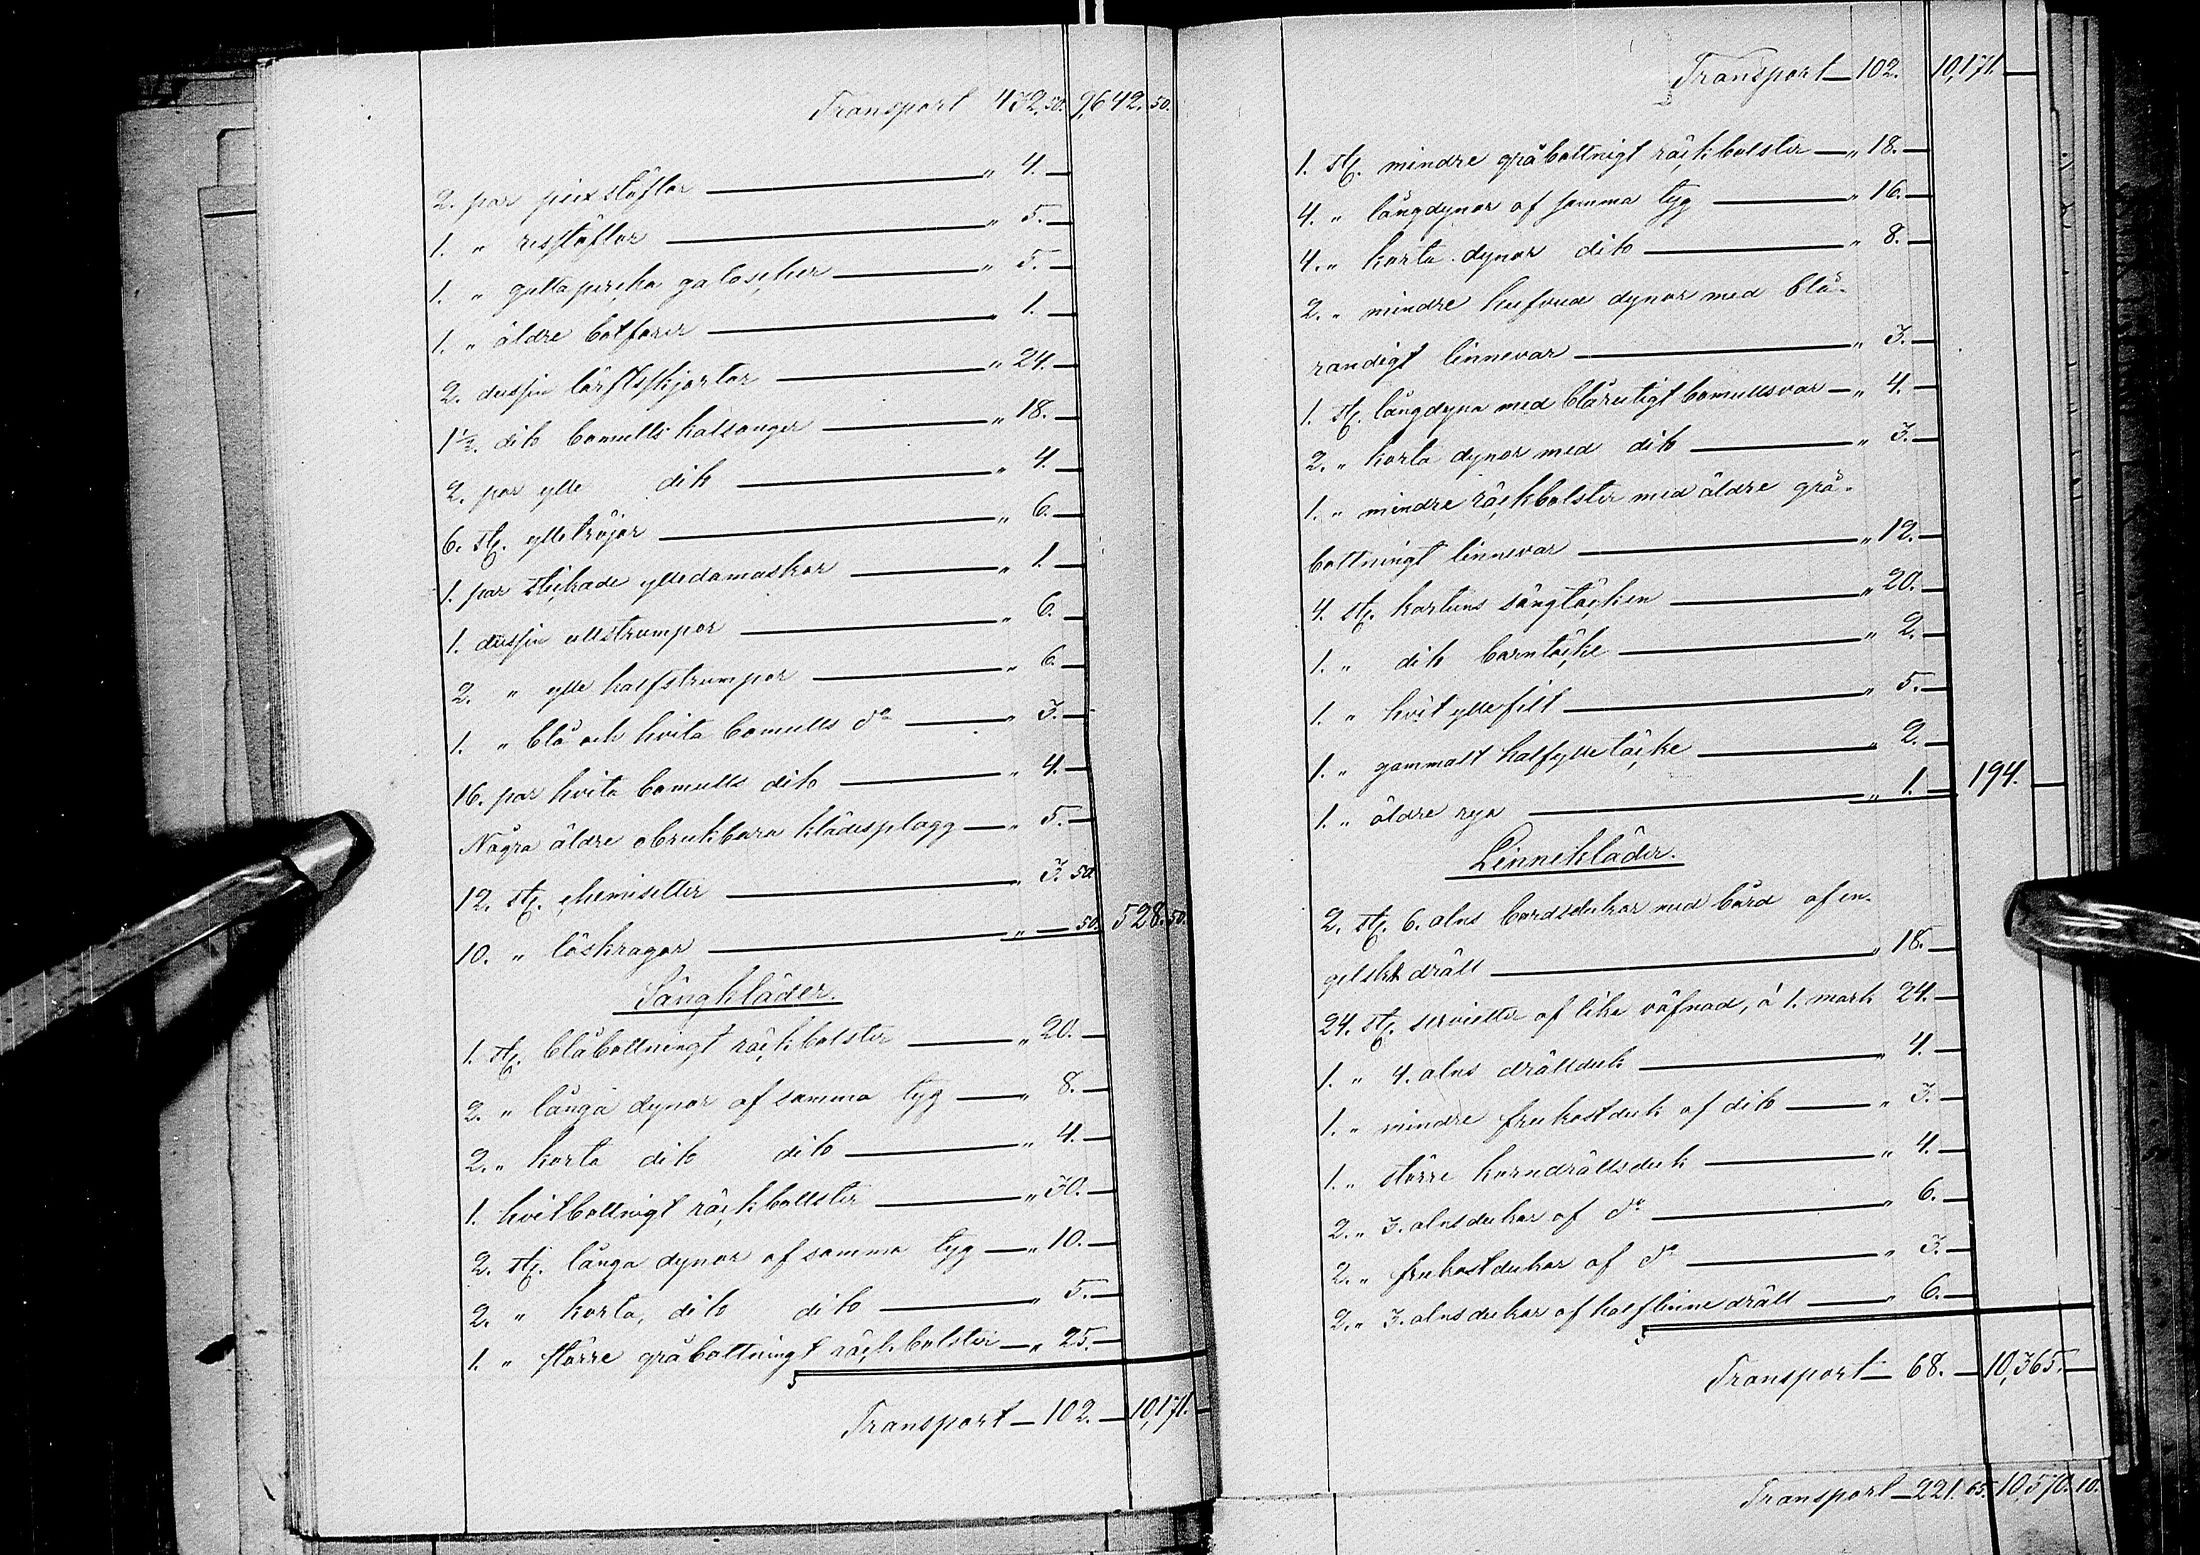 Transport 432.50. 9,642.50.
2. par pixstöflor — " 4. —
1. " resstöflor — " 5. —
1. " guttapercka galoscher — " 5. —
1. " äldre botforer — " 1. —
2. dussin lärftsskjortor — " 24. —
1½. dito bomulls kalsonger — " 18. —
2. par ylle dito — " 4. —
6. st. ylletröjor — " 6. —
1. par stickade ylledamasker — " 1. —
1. dussin ullstrumpor — " 6. —
2. " ylle halfstrumpor — " 6. —
1. " blå och hvita bomulls d:o — " 3. —
16. par hvita bomulls dito — " 4. —
Några äldre obrukbara klädesplagg — " 5. —
12. st. chemisetter — " 3.50.
10. " löskragar — " — 50. 528.50.
Sängkläder.
1. st. blåbottnigt räckbolster — " 20. —
2. " långa dynor af samma tyg — " 8. —
2. " korta dito dito — " 4. —
1. hvitbottnigt räckbollster — " 30. —
2. st. långa dynor af samma tyg — " 10. —
2. " korta, dito dito — " 5. —
1. " större gråbottningt räckbolster — " 25. —
Transport — 102. — 10,171. —
Transport — 102. 10,171. —
1. st. mindre gråbottnigt räckbolster — " 18. —
4. " långdynor af samma tyg — " 16. —
4. " korta dynor dito — " 8. —
2. " mindre hufvud dynor med blå-
randigt linnevar — " 3. —
1. st. långdyna med blårutigt bomullsvar — " 4. —
2. " korta dynor med dito — " 3. —
1. " mindre räckbolster med äldre grå-
bottningt linnevar — " 12. —
4. st. kartuns sängtäcken — " 20. —
1. " dito barntäcke — " 2. —
1. " hvit yllefilt — " 5. —
1. " gammalt halfylletäcke — " 2. —
1. " äldre rya — " 1. — 194. —
Linnekläder.
2. st. 6. alns bordsdukar med bård af en-
gelsk dräll — " 18. —
24. st. servietter af lika väfnad, á 1. mark 24. —
1. " 4. alns drällduk — " 4. —
1. " mindre frukostduk af dito — " 3. —
1. " större korndrällsduk — " 4. —
2. " 3. alnsdukar af d:o — " 6. —
2. " frukostdukar af d:o — " 3. —
2. " 3. alnsdukar af halflinne dräll — " 6. —
Transport — 68. — 10,365. —
Transport — 221.65. 10,570.10.